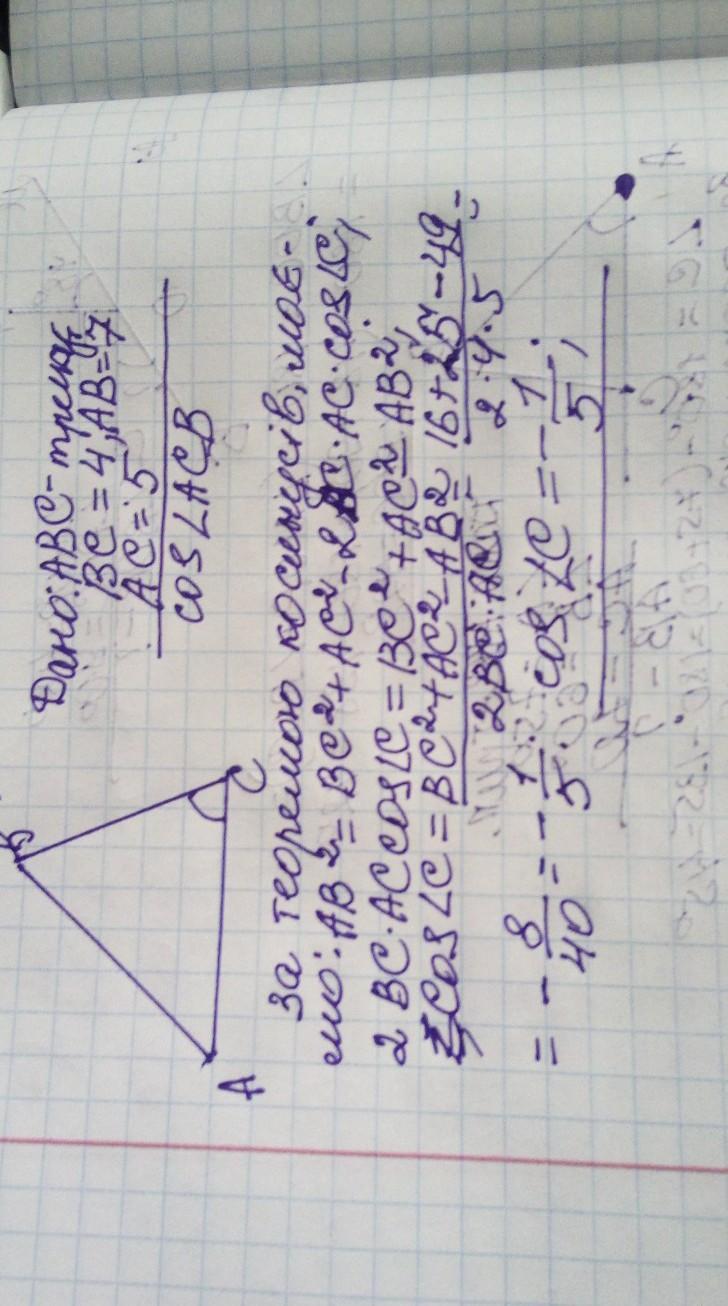 B
A
C
Дано: ABC - трикут
BC = 4, AB = 7
AC = 5
cos∠ACB
За теоремою косинусів, має-
мо: AB² = BC² + AC² - 2BC·AC·cos∠C,
2BC·AC cos∠C = BC² + AC² - AB²,
cos∠C = BC² + AC² - AB² / 2BC·AC = 16 + 25 - 49 / 2·4·5 =
= - 8/40 = - 1/5. cos∠C = - 1/5;